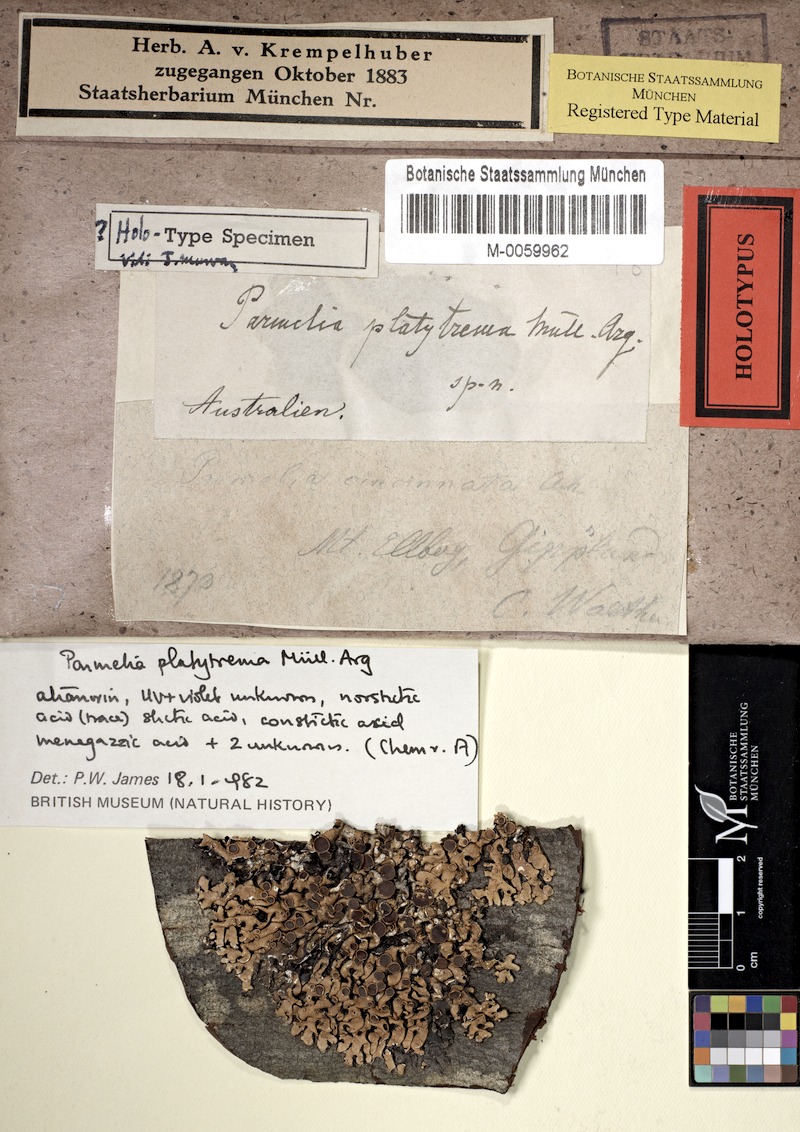 Herb. A. v. Krempelhuber
zugegangen Oktober 1883
Staatsherbarium München Nr.
STAATS-
BOTANISCHE STAATSSAMMLUNG
MÜNCHEN
Registered Type Material
Botanische Staatssammlung München
M-0059962
? Holo-Type Specimen
HOLOTYPUS
Parmelia platytrema Müll. Arg.
sp. n.
Australien.
Parmelia cincinnata Ach.
Mt. Ellbog,
1873
C.
Parmelia platytrema Müll. Arg
atranorin, UV+violet unknown, norstictic
acid (trace) stictic acid, constictic acid
menegazzic acid + 2 unknowns. (Chem r. A)
Det.: P.W. James 18.1.1982
BRITISH MUSEUM (NATURAL HISTORY)
M
BOTANISCHE
STAATSSAMMLUNG
MÜNCHEN
copyright reserved
0 1 2
cm